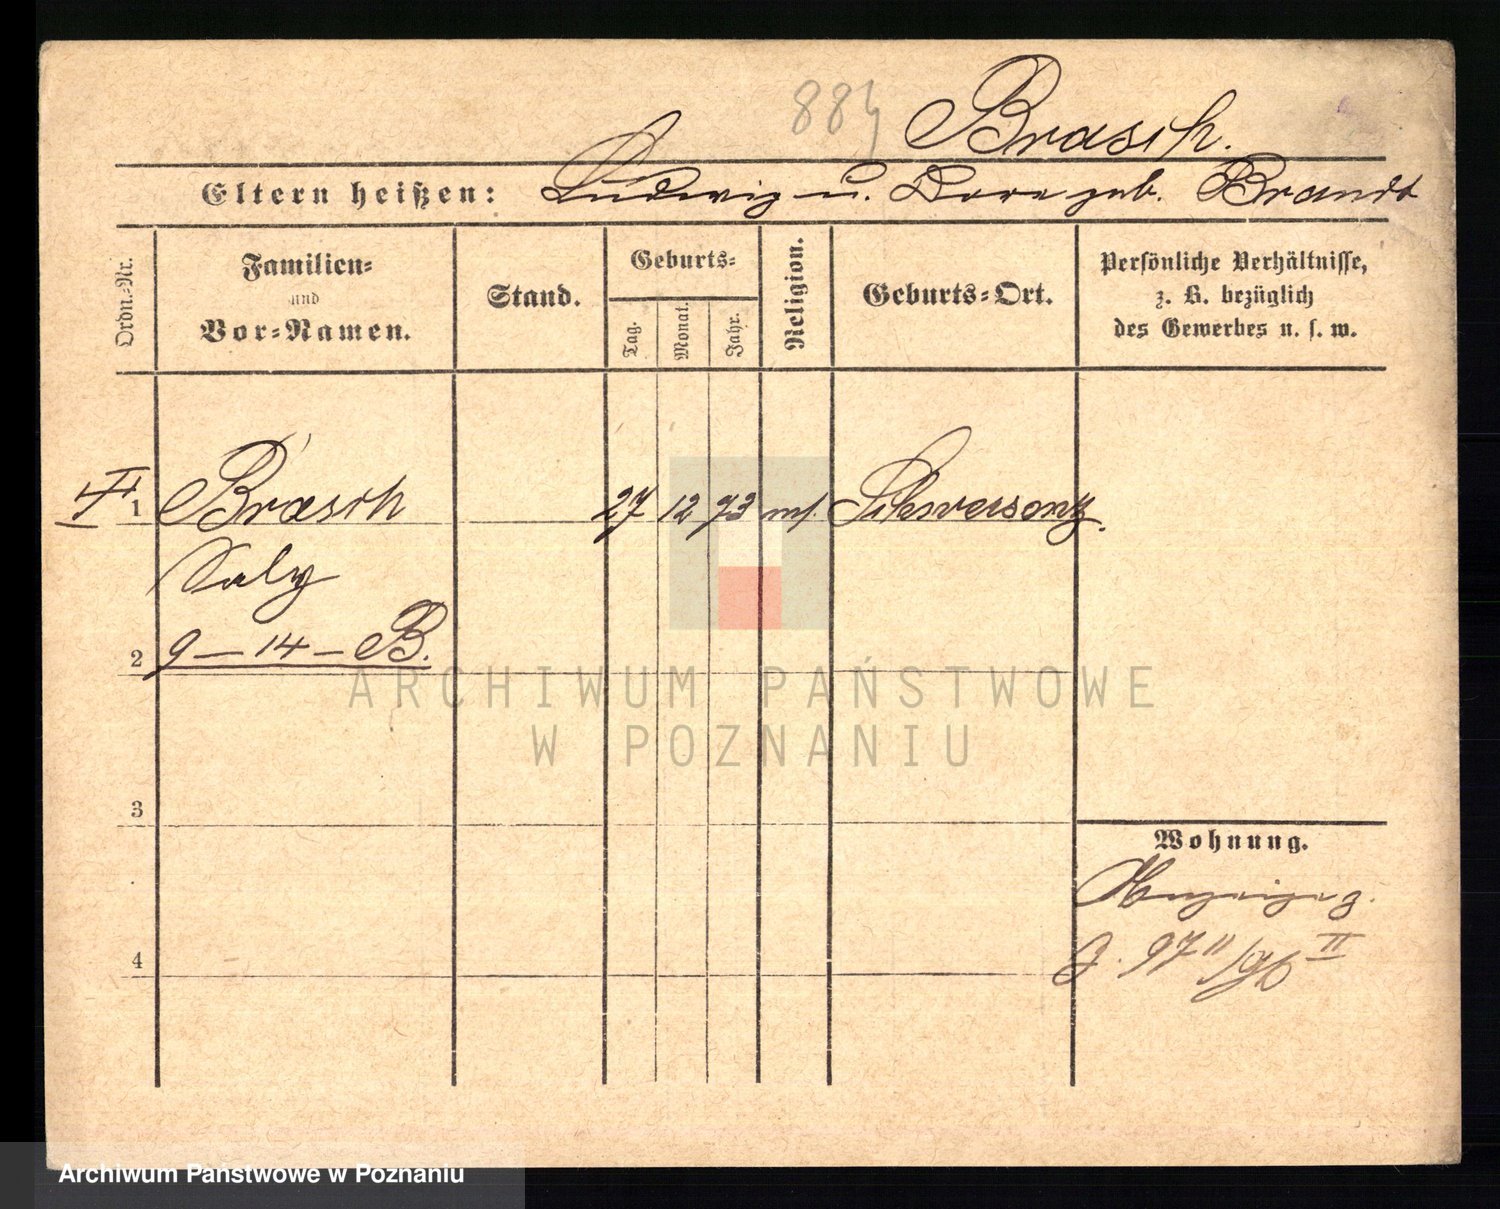 884 Brasch.
Eltern heißen: Ludwig u. Dore geb. Brandt
Ordn.-Nr.
Familien-
und
Vor-Namen.
Stand.
Geburts-
Tag.
Monat.
Jahr.
Religion.
Geburts-Ort.
Persönliche Verhältnisse,
z. B. bezüglich
des Gewerbes u. s. w.
1 Brasch 27 12 73 ms. Schwersenz.
Saly
2 9-14-B.
3
Wohnung.
4
ARCHIWUM PAŃSTWOWE
W POZNANIU
Archiwum Państwowe w Poznaniu